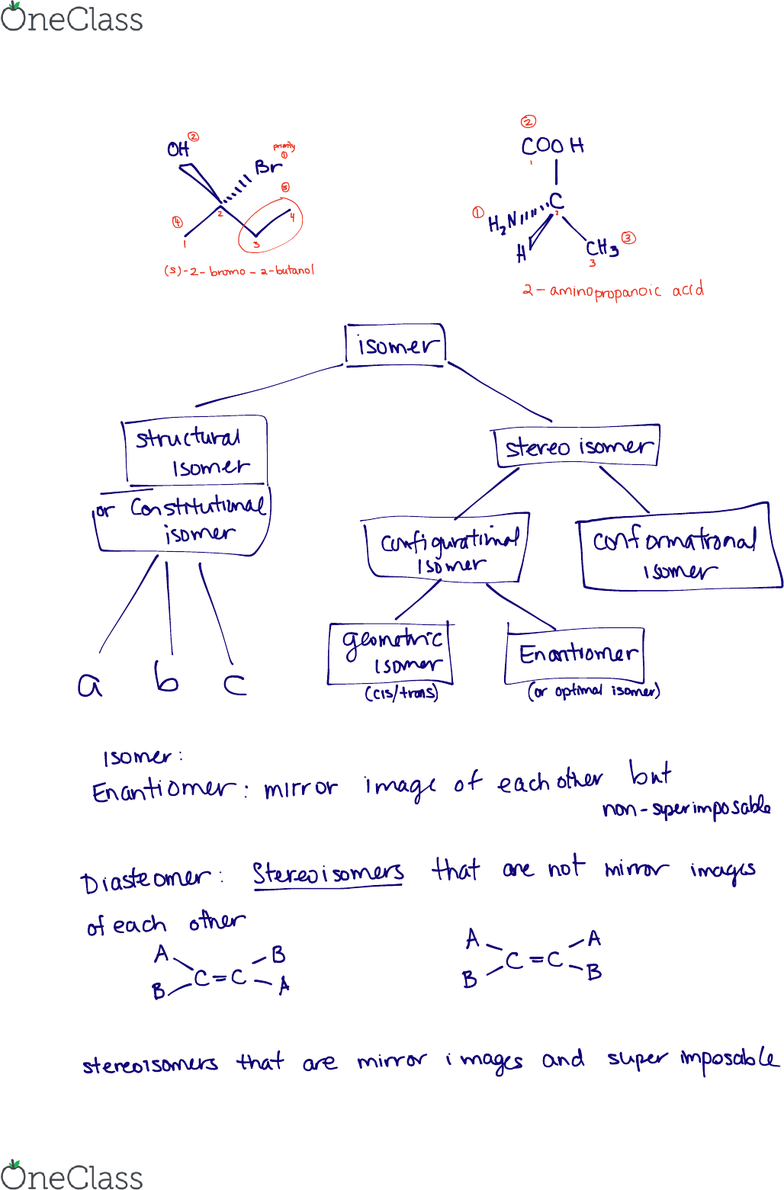 OneClass
OH ②
priority
①
Br
③
④
1
2
3
4
(S)-2-bromo-2-butanol
②
COOH
1
① H₂N
C
2
H
CH₃ ③
3
2-aminopropanoic acid
isomer
structural
isomer
or Constitutional
isomer
stereo isomer
configurational
isomer
conformational
isomer
a b c
geometric
isomer
(cis/trans)
Enantiomer
(or optimal isomer)
Isomer:
Enantiomer: mirror image of each other but
non-superimposable
Diasteomer: Stereoisomers that are not mirror images
of each other
A B
C=C
B A
A A
C=C
B B
stereoisomers that are mirror images and super imposable
OneClass